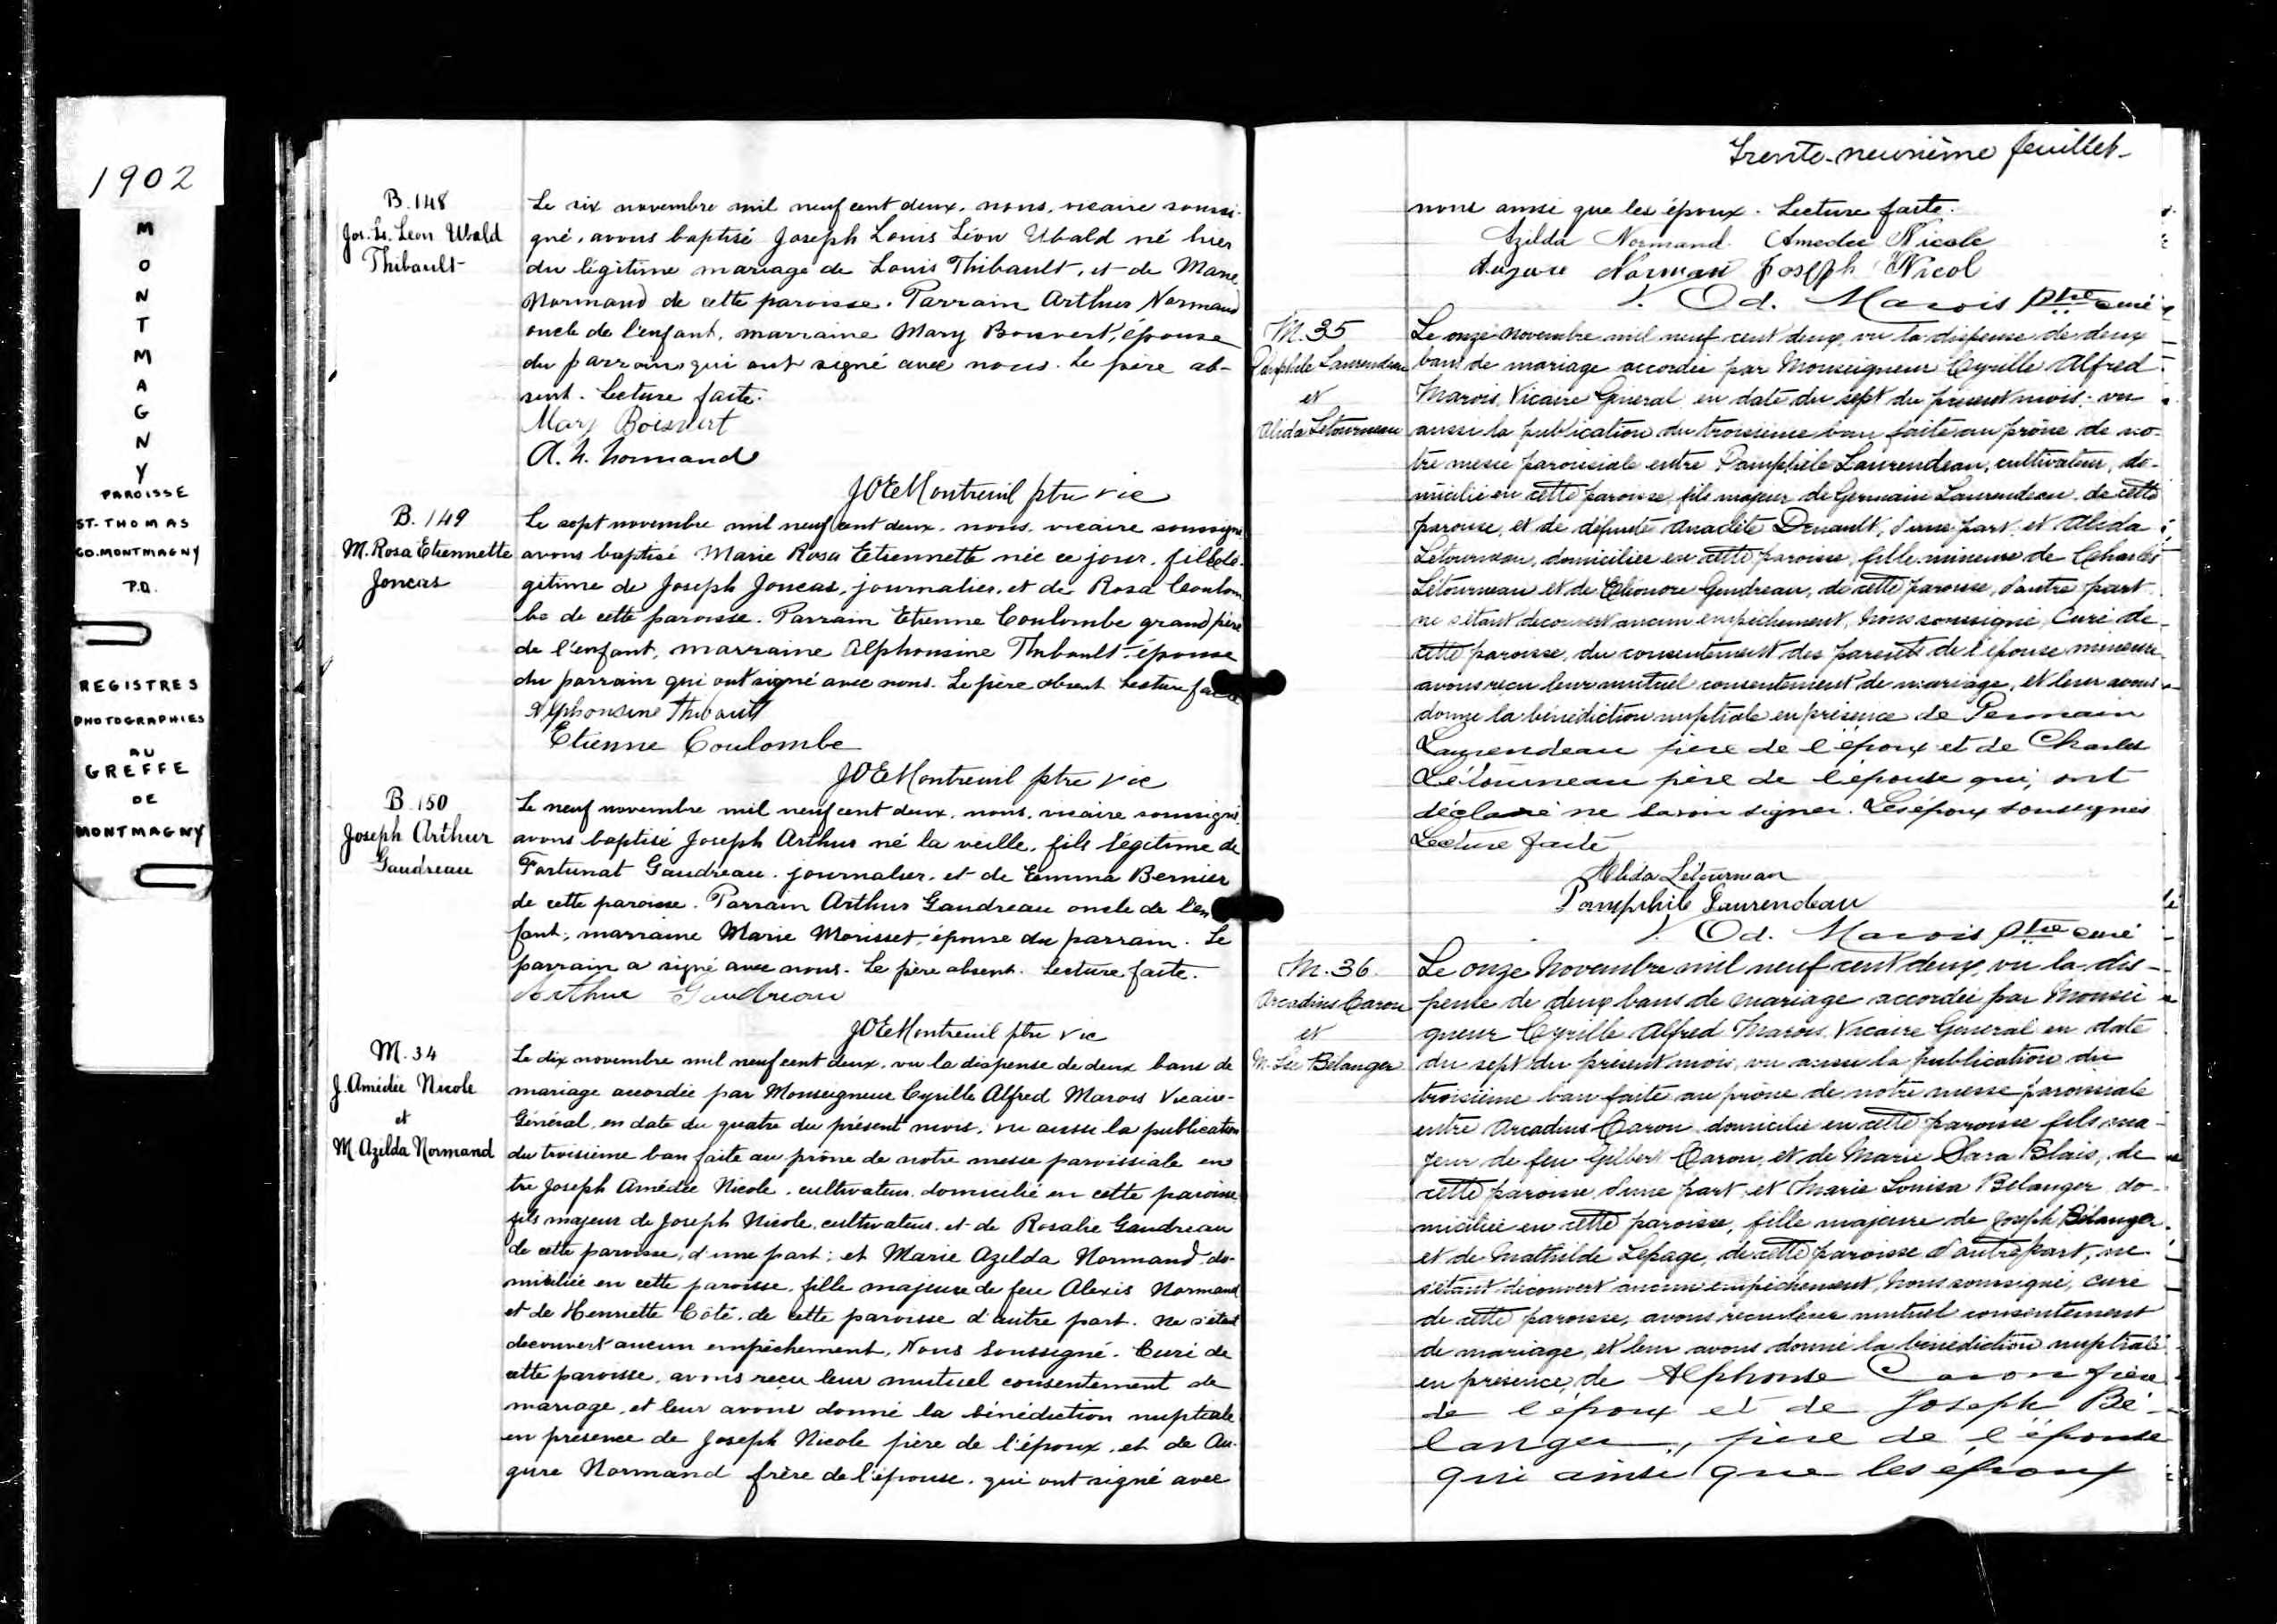 1902
M
O
N
T
M
A
G
N
Y
PAROISSE
ST. THOMAS
CO. MONTMAGNY
P.Q.
REGISTRES
PHOTOGRAPHIES
AU
GREFFE
DE
MONTMAGNY
B. 148
Jos. Ls. Léon Ubald
Thibault
Le six novembre mil neuf cent deux, nous, vicaire soussi-
gné, avons baptisé Joseph Louis Léon Ubald né hier
du légitime mariage de Louis Thibault, et de Marie
Normand de cette paroisse. Parrain Arthur Normand
oncle de l'enfant, marraine Mary Boisvert, épouse
du parrain qui ont signé avec nous. Le père ab-
sent. Lecture faite.
Mary Boisvert
A. N. Normand
JOE Montreuil ptre vic
B. 149
M. Rosa Etiennette
Joncas
Le sept novembre mil neuf cent deux, nous, vicaire soussigné
avons baptisé Marie Rosa Etiennette née ce jour, fille lé-
gitime de Joseph Joncas, journalier, et de Rosa Coulom
be de cette paroisse. Parrain Etienne Coulombe grand père
de l'enfant, marraine Alphonsine Thibault épouse
du parrain qui ont signé avec nous. Le père absent. Lecture faite
Alphonsine Thibault
Etienne Coulombe
JOE Montreuil ptre vic
B. 150
Joseph Arthur
Gaudreau
Le neuf novembre mil neuf cent deux, nous, vicaire soussigné,
avons baptisé Joseph Arthur né la veille, fils légitime de
Fortunat Gaudreau, journalier, et de Emma Bernier
de cette paroisse. Parrain Arthur Gaudreau oncle de l'en
fant, marraine Marie Morisset, épouse du parrain. Le
parrain a signé avec nous. Le père absent. Lecture faite.
Arthur Gaudreau
JOE Montreuil ptre vic
M. 34
J. Amédée Nicole
et
M. Azilda Normand
Le dix novembre mil neuf cent deux, vu la dispense de deux bans de
mariage accordée par Monseigneur Cyrille Alfred Marois Vicaire-
Général, en date du quatre du présent mois, vu aussi la publication
du troisième ban faite au prône de notre messe paroissiale en
tre Joseph Amédée Nicole, cultivateur, domicilié en cette paroisse,
fils majeur de Joseph Nicole, cultivateur, et de Rosalie Gaudreau
de cette paroisse, d'une part; et Marie Azilda Normand, do-
miciliée en cette paroisse, fille majeure de feu Alexis Normand
et de Henriette Côté, de cette paroisse d'autre part. Ne s'étant
découvert aucun empêchement, Nous soussigné, Curé de
cette paroisse, avons reçu leur mutuel consentement de
mariage, et leur avons donné la bénédiction nuptiale
en présence de Joseph Nicole père de l'époux, et de Au-
gure Normand frère de l'épouse, qui ont signé avec
Trente-neuvième feuillet
nous ainsi que les époux. Lecture faite.
Azilda Normand Amedee Nicole
Augure Norman Joseph Nicol
V. Od. Marois ptre curé
M. 35
Pamphile Laurendeau
et
Alida Létourneau
Le onze novembre mil neuf cent deux, vu la dispense de deux
bans de mariage accordée par Monseigneur Cyrille Alfred
Marois, Vicaire Général en date du sept du présent mois: vu
aussi la publication du troisième ban faite au prône de no-
tre messe paroissiale entre Pamphile Laurendeau, cultivateur, do-
micilié en cette paroisse, fils majeur de Germain Laurendeau, de cette
paroisse, et de défunte Anaclète Denault, d'une part, et Alida
Létourneau, domiciliée en cette paroisse, fille mineure de Charles
Létourneau et de Eléonore Gendreau, de cette paroisse, d'autre part
ne s'étant découvert aucun empêchement, Nous soussigné, Curé de
cette paroisse, du consentement des parents de l'épouse mineure,
avons reçu leur mutuel consentement de mariage, et leur avons
donné la bénédiction nuptiale en présence de Germain
Laurendeau père de l'époux et de Charles
Létourneau père de l'épouse qui, ont
déclaré ne savoir signer. Les époux soussignés
Lecture faite
Alida Létourneau
Pamphile Laurendeau
V. Od. Marois ptre curé
M. 36.
Arcadius Caron
et
M. Lse Bélanger
Le onze Novembre mil neuf cent deux, vu la dis-
pense de deux bans de mariage accordée par Monsei
gneur Cyrille Alfred Marois, Vicaire Général en date
du sept du présent mois, vu aussi la publication du
troisième ban faite au prône de notre messe paroissiale
entre Arcadius Caron domicilié en cette paroisse fils ma-
jeur de feu Gilbert Caron, et de Marie Sara Blais, de
cette paroisse, d'une part, et Marie Louisa Bélanger do-
miciliée en cette paroisse, fille majeure de Joseph Bélanger
et de Mathilde Lepage, de cette paroisse d'autre part, ne
s'étant découvert aucun empêchement, Nous soussigné, curé
de cette paroisse, avons reçu leur mutuel consentement
de mariage, et leur avons donné la bénédiction nuptiale
en présence, de Alphonse Caron frère
de l'époux et de Joseph Bé-
langer, père de l'épouse
qui ainsi que les époux